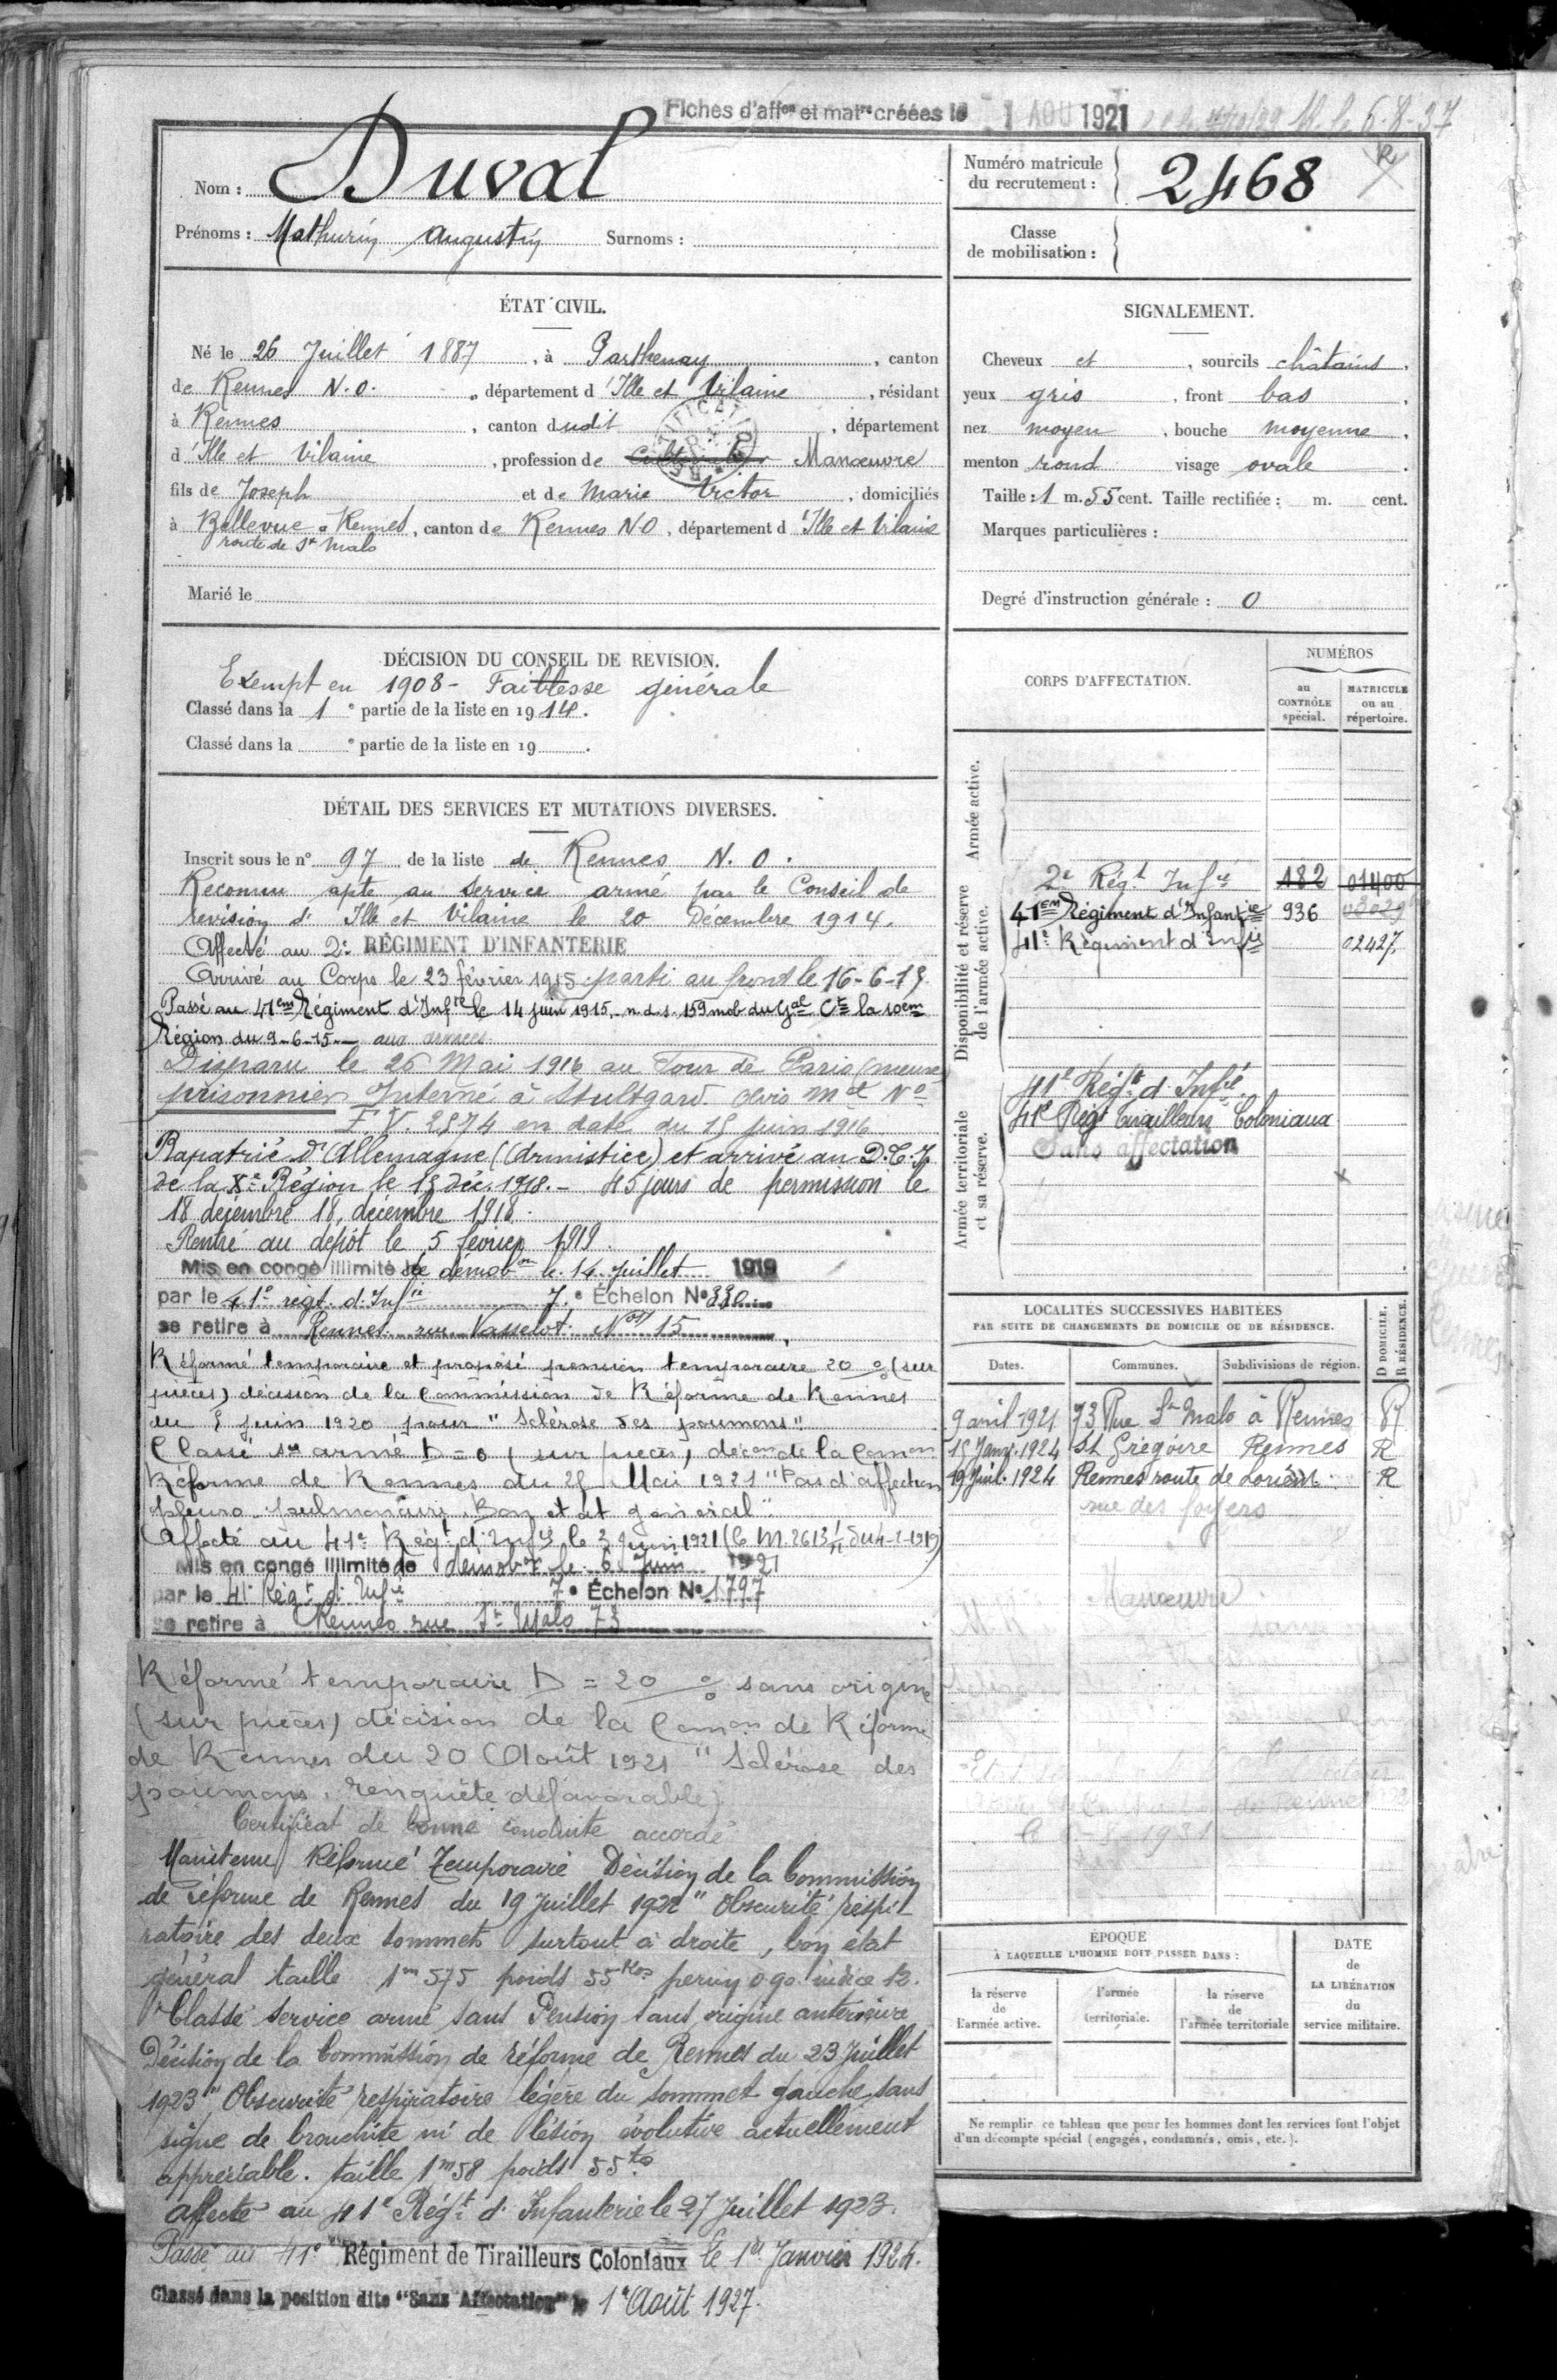 Fiches d'affon et matre créées le 1 AOU 1921 6-8-37
Nom : Duval
Prénoms : Mathurin Augustin Surnoms :
Numéro matricule du recrutement : 2468 R
Classe de mobilisation :
ÉTAT CIVIL.
Né le 26 Juillet 1887, à Parthenay, canton
de Rennes N.O., département d'Ille et Vilaine, résidant
à Rennes, canton dudit, département
d'Ille et Vilaine, profession de Cultivateur Manœuvre
fils de Joseph et de Marie Victor, domiciliés
à Bellevue à Rennes, canton de Rennes N.O, département d'Ille et Vilaine
route de St Malo
Marié le
SIGNALEMENT.
Cheveux et, sourcils châtains,
yeux gris, front bas,
nez moyen, bouche moyenne,
menton rond visage ovale.
Taille : 1 m. 55 cent. Taille rectifiée : m. cent.
Marques particulières :
Degré d'instruction générale : 0
DÉCISION DU CONSEIL DE REVISION.
Exempt en 1908 - Faiblesse générale
Classé dans la 1e partie de la liste en 1914.
Classé dans la e partie de la liste en 19 .
DÉTAIL DES SERVICES ET MUTATIONS DIVERSES.
Inscrit sous le n° 97 de la liste de Rennes N.O.
Reconnu apte au service armé par le Conseil de
revision d'Ille et Vilaine le 20 Décembre 1914.
Affecté au 2e RÉGIMENT D'INFANTERIE
Arrivé au Corps le 23 février 1915 parti au front le 16-6-15.
Passé au 41em Régiment d'Infrie le 14 juin 1915, n.d.s. 159 mob du Gal Ct la 10em
Région du 9-6-15 - aux armées.
Disparu le 26 Mai 1916 au Four de Paris (meuse
prisonnier Interné à Stultgard avis Mel No
F.V. 2574 en date du 15 juin 1916
Rapatrié d'Allemagne (Armistice) et arrivé au D.C.I
de la Xe Région le 15 déc. 1918. - 45 jours de permission le
18 décembre 18, décembre 1918.
Rentré au dépôt le 5 février 1919.
Mis en congé illimité de démobon le 14 juillet 1919
par le 41e régt d'Infie 7e Échelon No 330
se retire à Rennes rue Vasselot No 15
Réformé temporaire et proposé pension temporaire 20 % (sur
pièces) décision de la Commission de Réforme de Rennes
du juin 1920 pour "Sclérose des poumons".
Classé sce armé D = 0 (sur pièces) décon de la Comon
Réforme de Rennes du 25 Mai 1921 "Pas d'affection
pleuro-pulmonaire. Bon état général".
Affecté au 41e Régt d'Infie le 3 juin 1921 (C.M. 2613 1/11 du 4-2-1919)
Mis en congé illimité de démobon le 6 Juin 1921
par le 41e Régt d'Infie 7e Échelon No 1797
se retire à Rennes rue St Malo 73
Réformé temporaire D = 20 % sans origine
(sur pièces) décision de la Comon de Réforme
de Rennes du 20 Août 1921 "Sclérose des
poumons, enquête défavorable)
Certificat de bonne conduite accordé
Maintenu Réformé Temporaire Décision de la Commission
de réforme de Rennes du 19 Juillet 1922 "Obscurité respi-
ratoire des deux sommets surtout à droite, bon état
général taille 1m575 poids 55kos périm 0.90. indice 12.
Classé service armé sans Pension sans origine antérieure
Décision de la Commission de réforme de Rennes du 23 Juillet
1923 "Obscurité respiratoire légère du sommet gauche sans
signe de bronchite ni de lésion évolutive actuellement
appréciable. taille 1m58 poids 55ko
Affecté au 41e Régt d'Infanterie le 27 Juillet 1923.
Passé au 41e Régiment de Tirailleurs Coloniaux le 1er Janvier 1924.
Classé dans la position dite "Sans Affectation" le 1er Août 1927.
CORPS D'AFFECTATION.
NUMÉROS
au CONTRÔLE spécial.
MATRICULE ou au répertoire.
Armée active.
Disponibilité et réserve de l'armée active.
2e Régt Infie 182 01400
41EM Régiment d'Infantie 936
41e Régiment d'Infie 02427
Armée territoriale et sa réserve.
41e Régt d'Infie
41e Régt Tirailleurs Coloniaux
Sans affectation
LOCALITÉS SUCCESSIVES HABITÉES
PAR SUITE DE CHANGEMENTS DE DOMICILE OU DE RÉSIDENCE.
Dates. Communes. Subdivisions de région. D DOMICILE. R RÉSIDENCE.
9 avril 1921 73 Rue St Malo à Rennes
15 Janv. 1924 St Grégoire Rennes R
19 Juil. 1924 Rennes route de Lorient R
rue des foyers
Manœuvre
de Rennes
1931
ÉPOQUE
À LAQUELLE L'HOMME DOIT PASSER DANS :
la réserve de l'armée active.
l'armée territoriale.
la réserve de l'armée territoriale
DATE de LA LIBÉRATION du service militaire.
Ne remplir ce tableau que pour les hommes dont les services font l'objet
d'un décompte spécial (engagés, condamnés, omis, etc.).